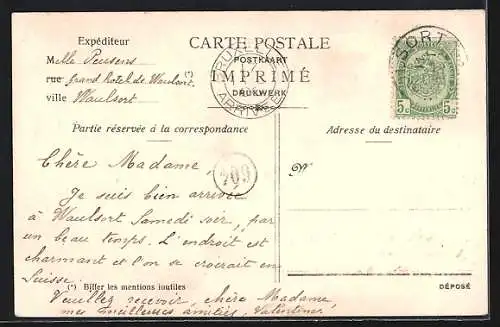 Expéditeur
Mlle Peusens
rue Grand hotel de Waulsort
ville Waulsort
CARTE POSTALE
POSTKAART
IMPRIMÉ
DRUKWERK
BRUXELLES
ARRIVÉE
SORT
5c 5c
Partie réservée à la correspondance
Adresse du destinataire
Chère Madame
209
M
Je suis bien arrivée
à Waulsort Samedi soir, par
un beau temps. L'endroit est
charmant et l'on se croirait en
Suisse.
(*) Biffer les mentions inutiles
DÉPOSÉ
Veuillez recevoir, chère Madame,
mes meilleures amitiés, Valentine